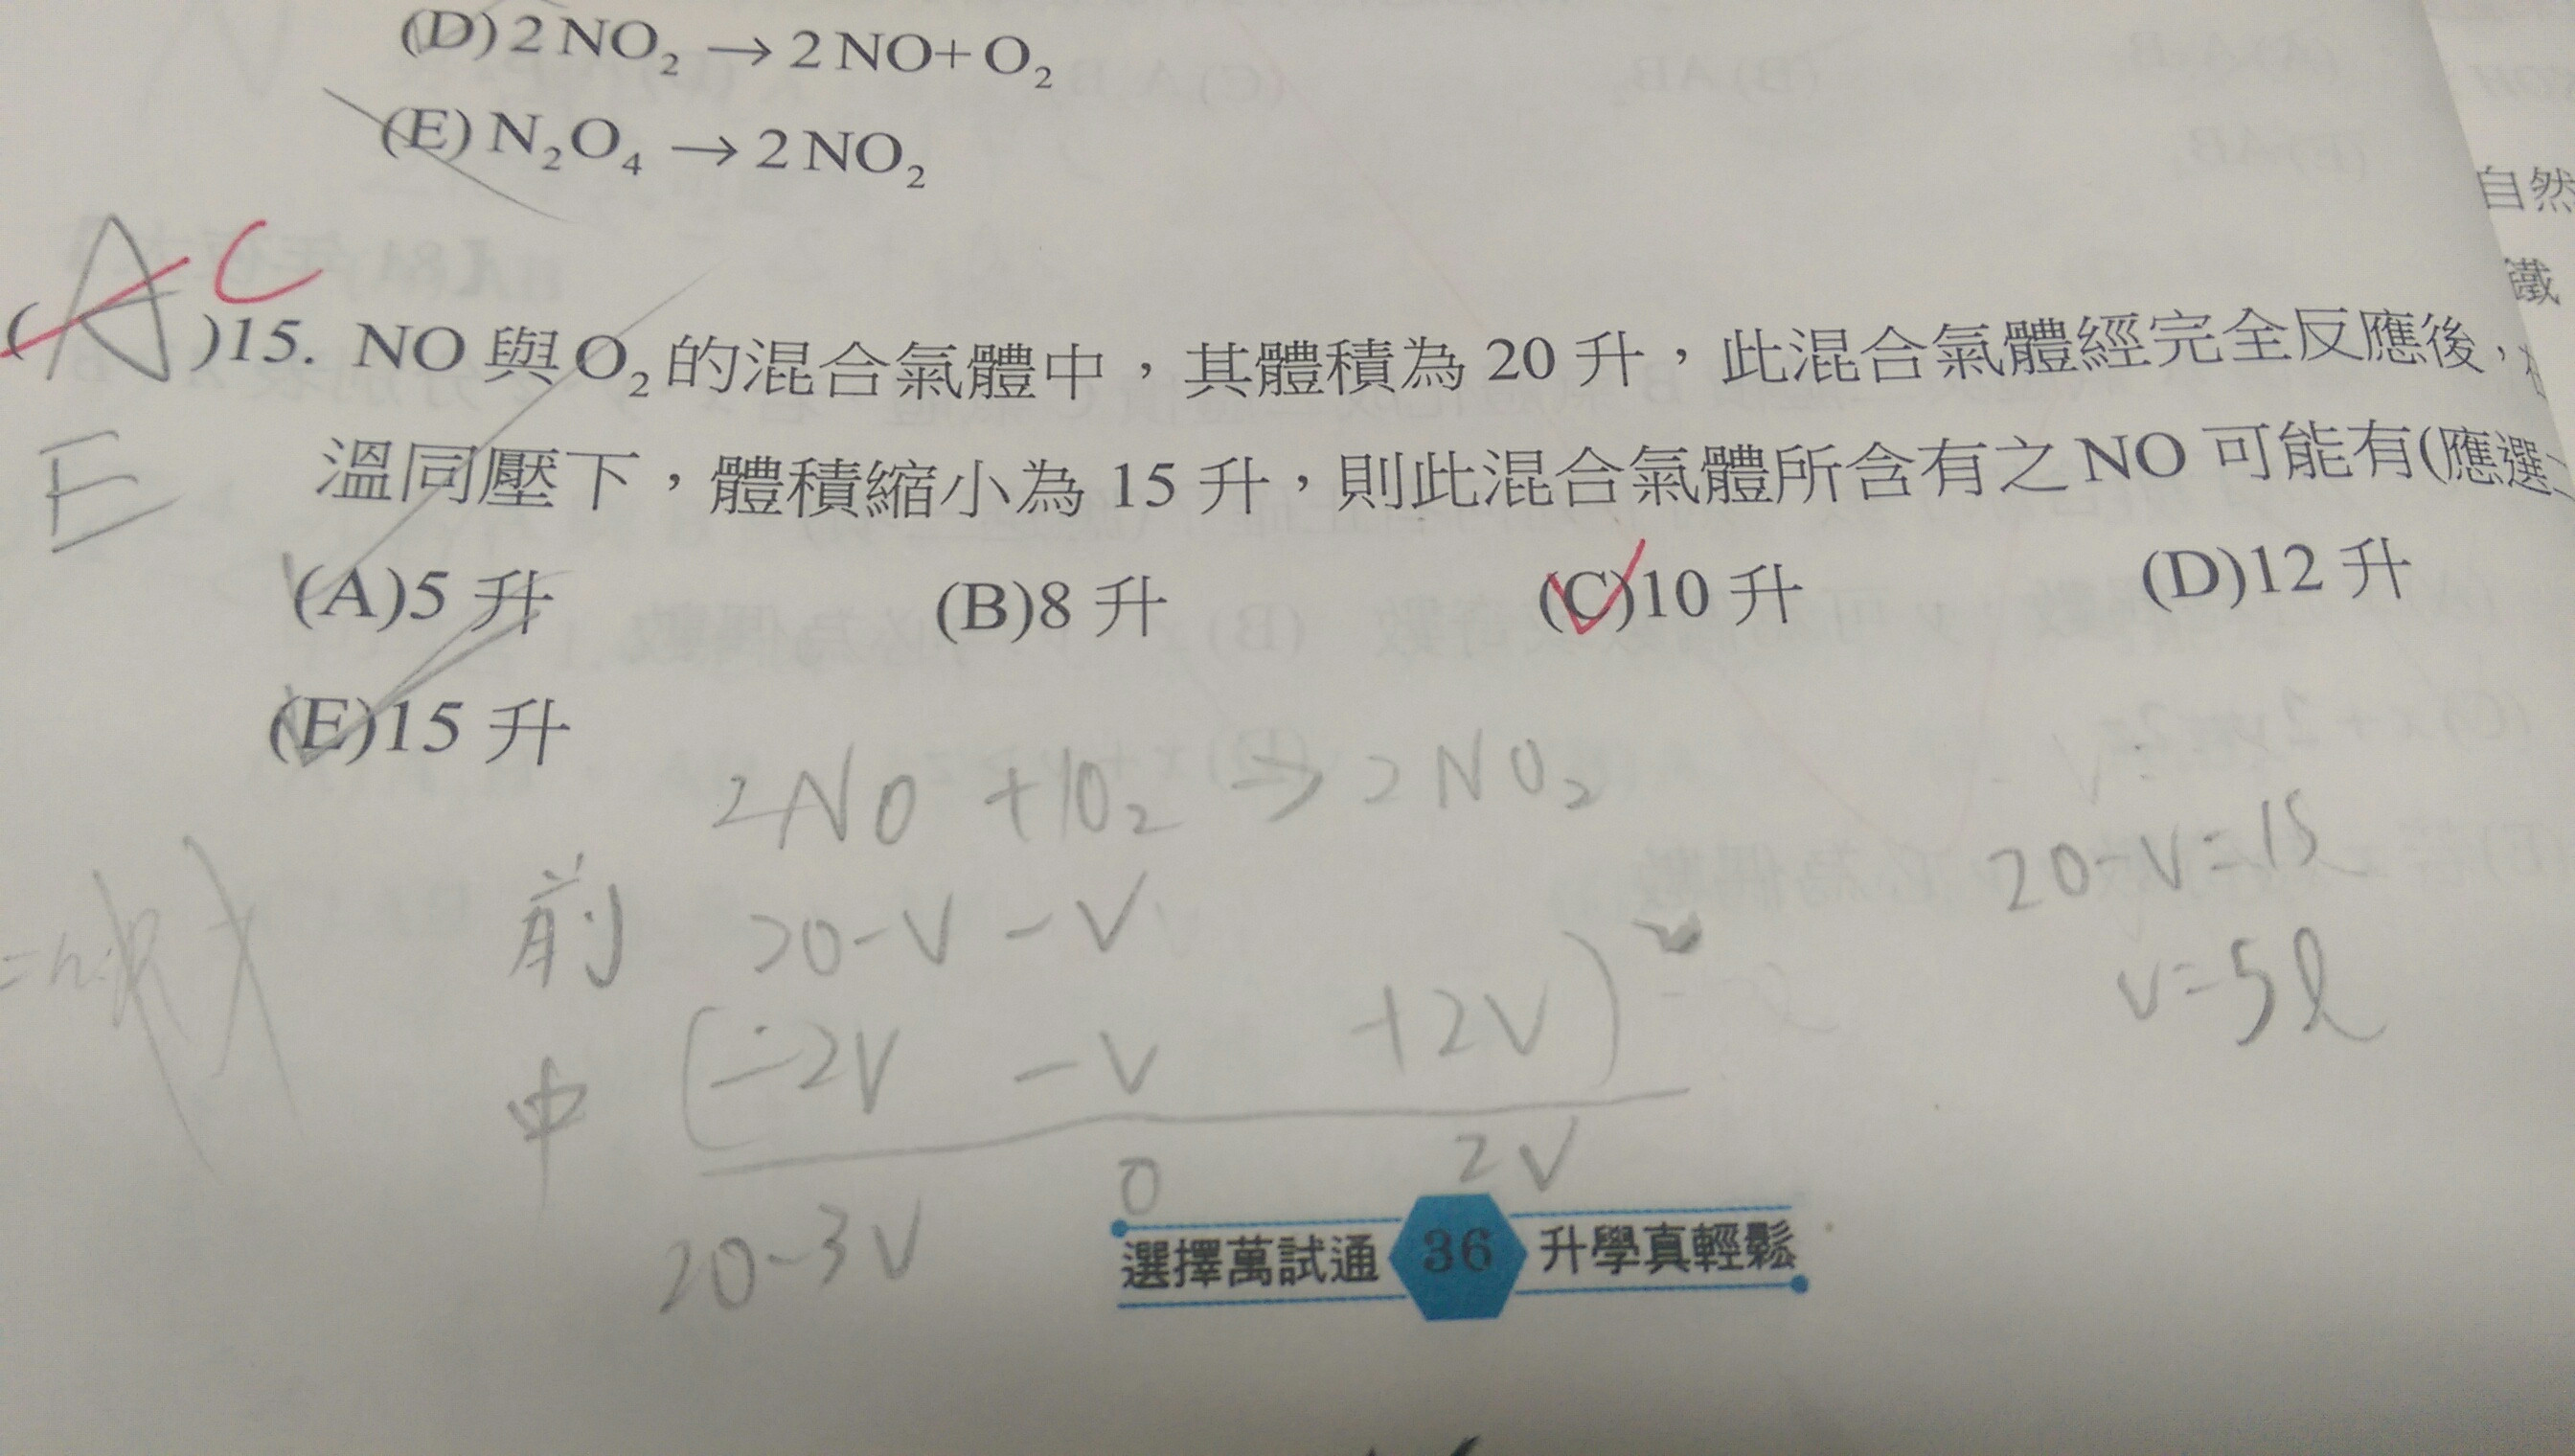 (D) 2 NO₂ → 2 NO+ O₂
(E) N₂O₄ → 2 NO₂
自然
鐵
(A)15. NO 與 O₂ 的混合氣體中，其體積為 20 升，此混合氣體經完全反應後，
C
溫同壓下，體積縮小為 15 升，則此混合氣體所含有之 NO 可能有(應選
E
(A)5 升 (B)8 升 (C)10 升 (D)12 升
(E)15 升
2NO +1O₂ → 2NO₂
20-V=15
前 20-V -V
V=5ℓ
中 (-2V -V +2V)
20-3V 0 2V
選擇萬試通 36 升學真輕鬆